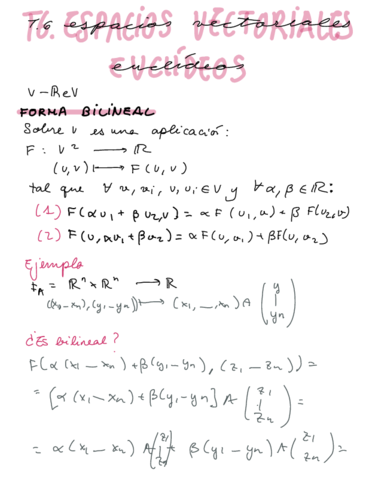 T.6 ESPACIOS VECTORIALES
EUCLÍDEOS
T.6 espacios vectoriales
euclídeos
V - ReV
FORMA BILINEAL
Sobre V es una aplicación:
F: V² ⟶ ℝ
(u,v) ⟼ F(u,v)
tal que ∀ u, ui, v, vi ∈ V y ∀ α, β ∈ ℝ:
(1) F(αu1 + βu2, v) = αF(u1, v) + βF(u2, v)
(2) F(u, αv1 + βv2) = αF(u, v1) + βF(u, v2)
Ejemplo
FA = ℝⁿ × ℝⁿ ⟶ ℝ
((x1 — xn), (y1 — yn)) ⟼ (x1, —, xn) A (y | yn)
¿Es bilineal?
F(α(x1 — xn) + β(y1 — yn), (z1 — zn)) =
= [α(x1 — xn) + β(y1 — yn)] A (z1 | zn) =
= α(x1 — xn) A (z1 | zn) + β(y1 — yn) A (z1 zn) =